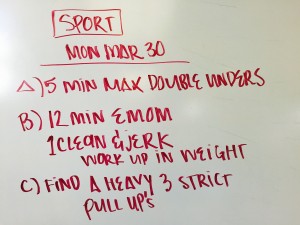 SPORT
MON MAR 30
A) 5 MIN MAX DOUBLE UNDERS
B) 12 MIN EMOM
1 CLEAN & JERK
WORK UP IN WEIGHT
C) FIND A HEAVY 3 STRICT
PULL UP'S